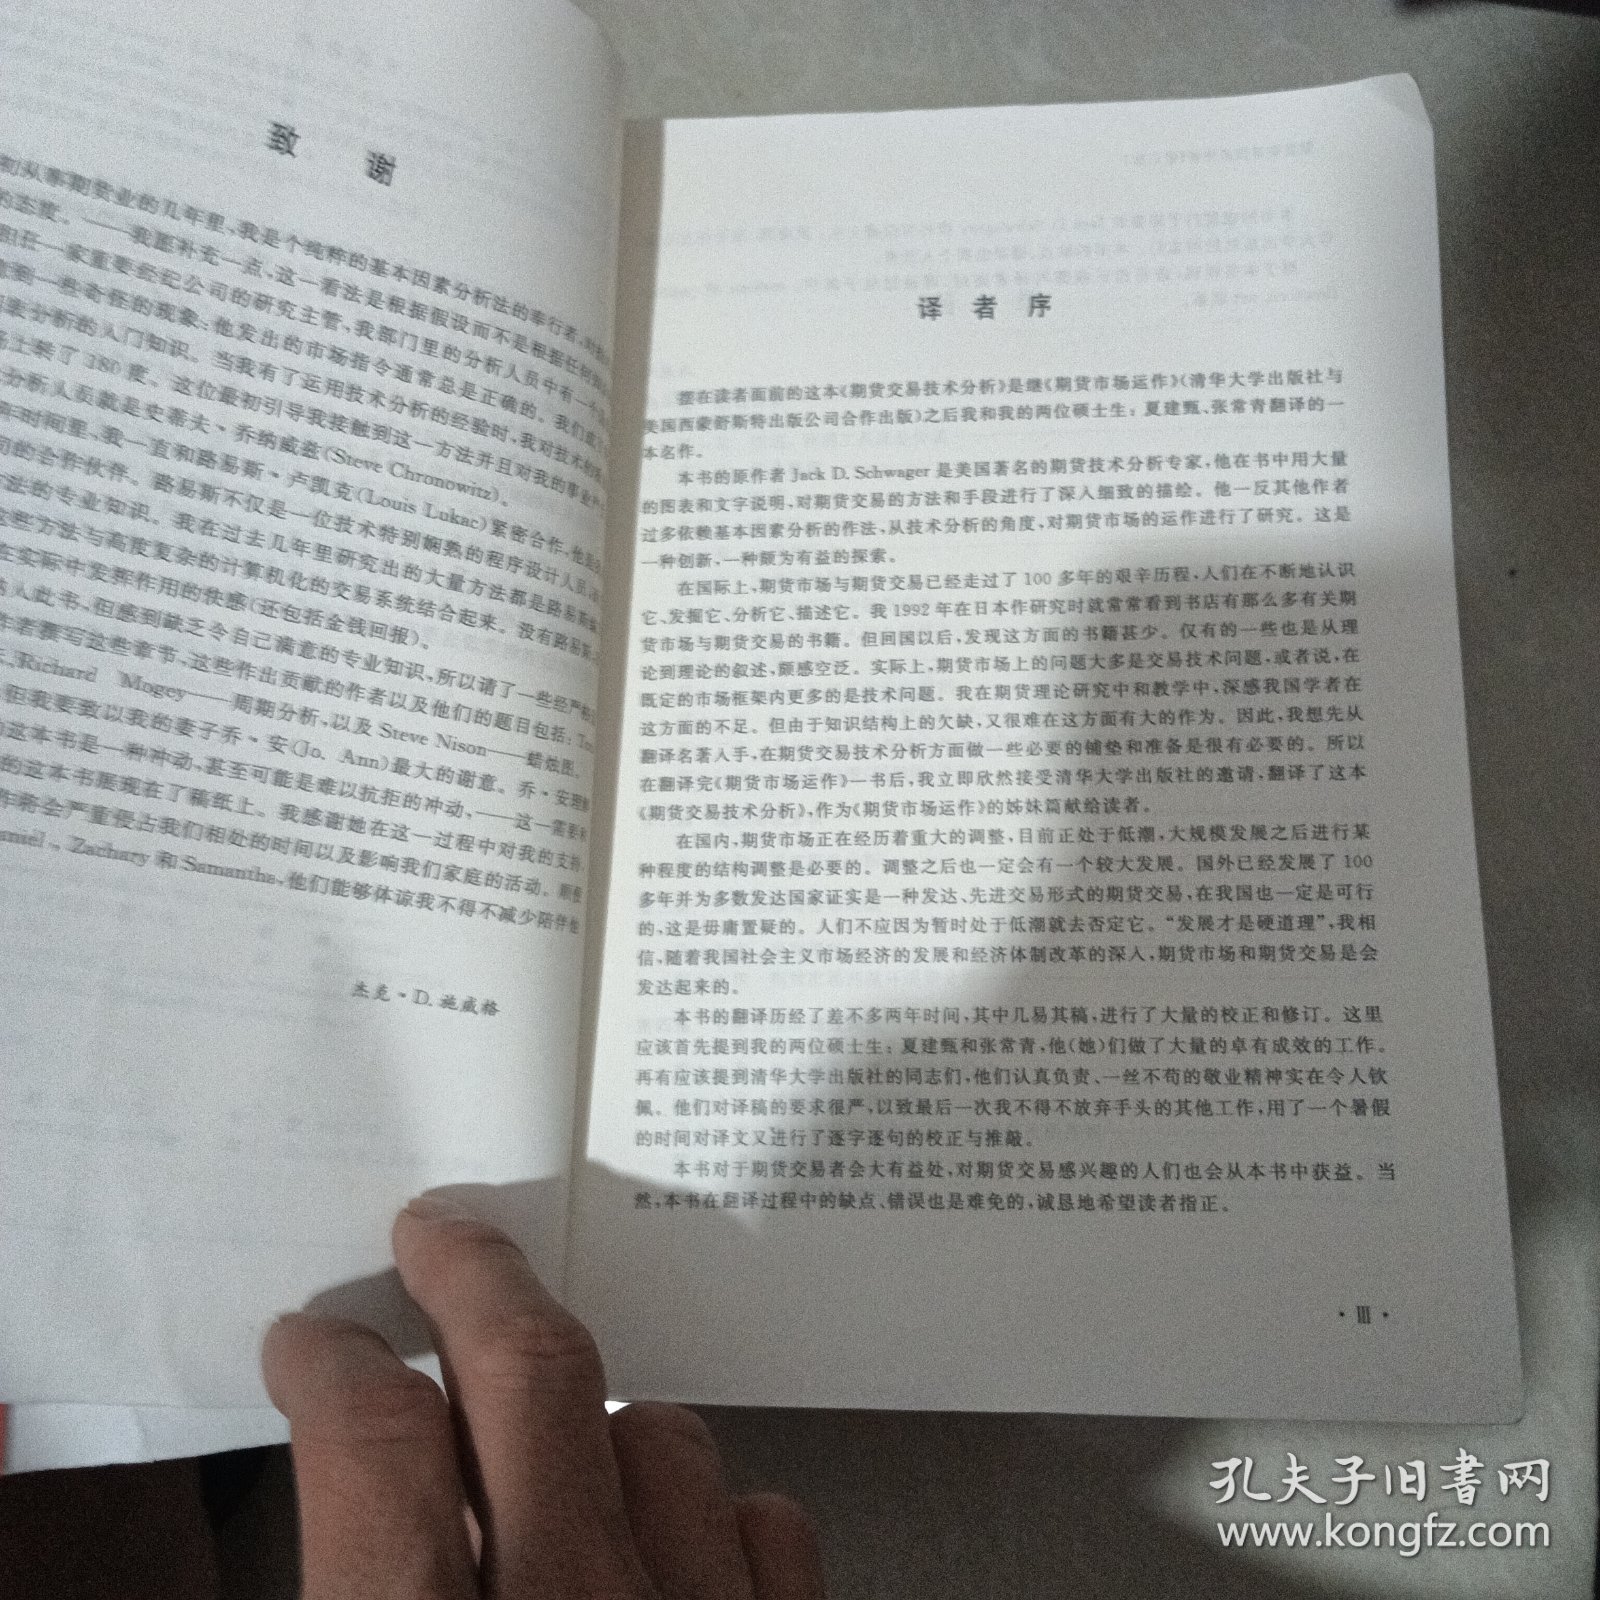 致 谢
初从事期货业的几年里、我是个纯粹的基本因素分析法的奉行者,对技
的态度。——我愿补充一点、这一看法是根据假设而不是根据任何
一家重要经纪公司的研究主管、我部门里的分析人员中有一个
到一些奇怪的现象:他发出的市场指令通常总是正确的。我们
表分析的入门知识。当我有了运用技术分析的经验时、我对技术
上转了180度。这位最初引导我接触到这一方法并且对我的事业
分析人员就是史蒂夫·乔纳威兹(Steve Chronowitz)。
时间里、我一直和路易斯·卢凯克(Louis Lukac)紧密合作,他是
的合作伙伴。路易斯不仅是一位技术特别娴熟的程序设计人员
法的专业知识。我在过去几年里研究出的大量方法都是路易斯
这些方法与高度复杂的计算机化的交易系统结合起来。没有路易斯
在实际中发挥作用的快感(还包括金钱回报)。
入此书、但感到缺乏令自己满意的专业知识,所以请了一些经
作者撰写这些章节、这些作出贡献的作者以及他们的题目包括:
、Richard Mogey——周期分析、以及Steve Nison——蜡烛图。
但我要致以我的妻子乔·安(Jo. Ann)最大的谢意。乔·安理解
这本书是一种冲动、甚至可能是难以抗拒的冲动、——这一需要
的这本书展现在了稿纸上。我感谢她在这一过程中对我的支持,
作将会严重侵占我们相处的时间以及影响我们家庭的活动。
aniel、Zachary和Samantha,他们能够体谅我不得不减少陪伴他
杰克·D.施威格
译 者 序
摆在读者面前的这本《期货交易技术分析》是继《期货市场运作》(清华大学出版社与
美国西蒙舒斯特出版公司合作出版)之后我和我的两位硕士生:夏建甄、张常青翻译的一
本名作。
本书的原作者Jack D. Schwager是美国著名的期货技术分析专家,他在书中用大量
的图表和文字说明,对期货交易的方法和手段进行了深入细致的描绘。他一反其他作者
过多依赖基本因素分析的作法,从技术分析的角度,对期货市场的运作进行了研究。这是
一种创新,一种颇为有益的探索。
在国际上,期货市场与期货交易已经走过了100多年的艰辛历程,人们在不断地认识
它、发掘它、分析它、描述它。我1992年在日本作研究时就常常看到书店有那么多有关期
货市场与期货交易的书籍。但回国以后,发现这方面的书籍甚少。仅有的一些也是从理
论到理论的叙述,颇感空泛。实际上,期货市场上的问题大多是交易技术问题,或者说,在
既定的市场框架内更多的是技术问题。我在期货理论研究中和教学中,深感我国学者在
这方面的不足。但由于知识结构上的欠缺,又很难在这方面有大的作为。因此,我想先从
翻译名著入手,在期货交易技术分析方面做一些必要的铺垫和准备是很有必要的。所以
在翻译完《期货市场运作》一书后,我立即欣然接受清华大学出版社的邀请,翻译了这本
《期货交易技术分析》,作为《期货市场运作》的姊妹篇献给读者。
在国内,期货市场正在经历着重大的调整,目前正处于低潮,大规模发展之后进行某
种程度的结构调整是必要的。调整之后也一定会有一个较大发展。国外已经发展了100
多年并为多数发达国家证实是一种发达、先进交易形式的期货交易,在我国也一定是可行
的,这是毋庸置疑的。人们不应因为暂时处于低潮就去否定它。“发展才是硬道理”,我相
信,随着我国社会主义市场经济的发展和经济体制改革的深入,期货市场和期货交易是会
发达起来的。
本书的翻译历经了差不多两年时间,其中几易其稿,进行了大量的校正和修订。这里
应该首先提到我的两位硕士生:夏建甄和张常青,他(她)们做了大量的卓有成效的工作。
再有应该提到清华大学出版社的同志们,他们认真负责、一丝不苟的敬业精神实在令人钦
佩。他们对译稿的要求很严,以致最后一次我不得不放弃手头的其他工作,用了一个暑假
的时间对译文又进行了逐字逐句的校正与推敲。
本书对于期货交易者会大有益处,对期货交易感兴趣的人们也会从本书中获益。当
然,本书在翻译过程中的缺点、错误也是难免的,诚恳地希望读者指正。
· III ·
孔夫子旧书网
www.kongfz.com